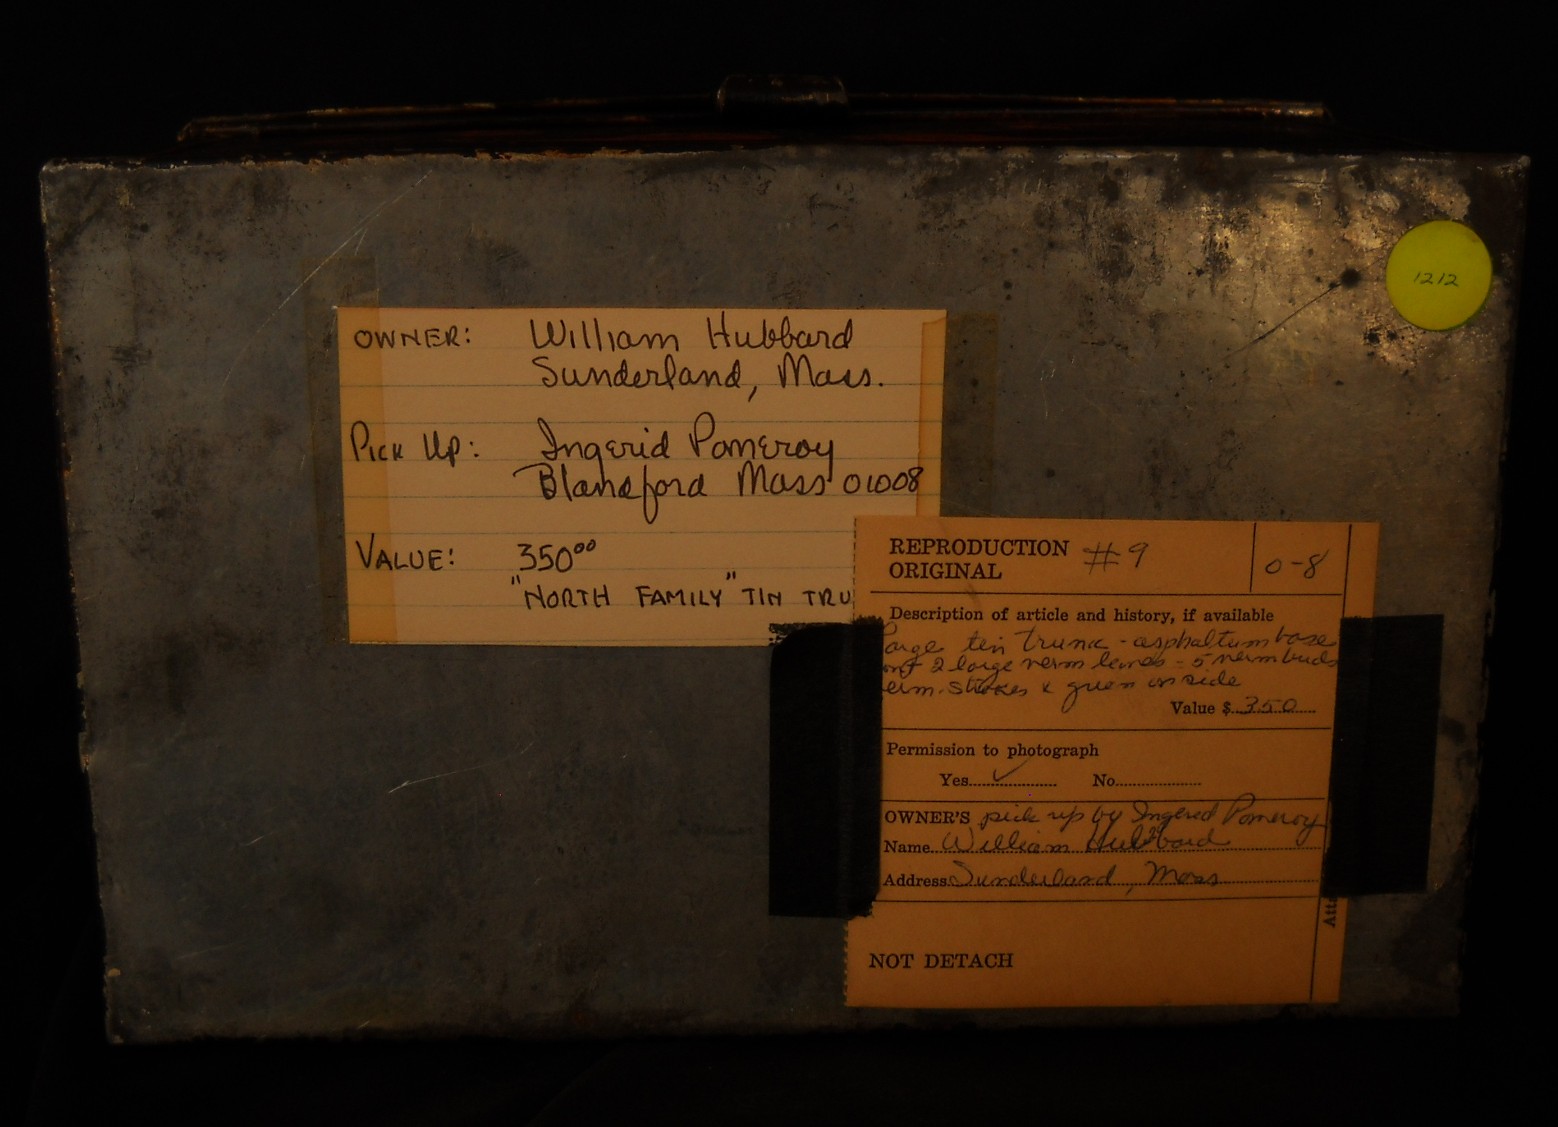 1212
OWNER: William Hubbard
Sunderland, Mass.
Pick Up: Ingerid Pomeroy
Blandford Mass 01008
VALUE: 350⁰⁰
"NORTH FAMILY" TIN TRU
REPRODUCTION #9
ORIGINAL
0-8
Description of article and history, if available
large tin trunk - asphaltum base
2 large verm - 5 verm buds
strokes & green on side
Value $ 350
Permission to photograph
Yes ✓ No
OWNER'S pick up by Ingerid Pomeroy
Name William Hubbard
Address Sunderland, Mass
Atta
NOT DETACH